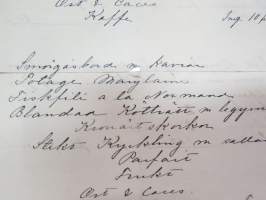 Ost & Caces
Kaffe Ing. 10 p
Smörgåsbord m Kaviar
Potage Marylaine
Fiskfilé a la Normand
Blandad Kötträtt m legym
Kronärtskockor
Stekt Kyckling m sallad
Parfait
Frukt
Ost & Caces.